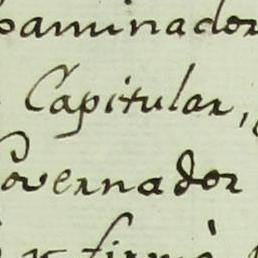 oaminador
Capitular,
Governador
y firmó